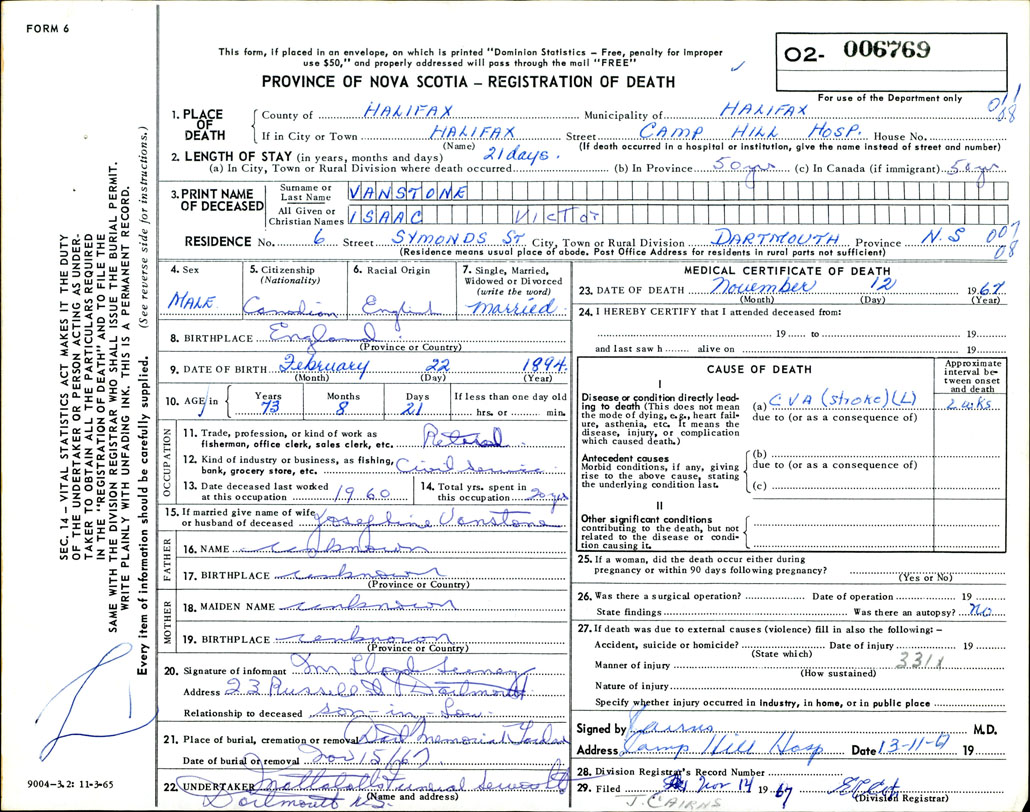 FORM 6
This form, if placed in an envelope, on which is printed "Dominion Statistics – Free, penalty for improper
use $50," and properly addressed will pass through the mail "FREE"
PROVINCE OF NOVA SCOTIA – REGISTRATION OF DEATH
O2- 006769
For use of the Department only
1. PLACE OF DEATH
County of HALIFAX Municipality of HALIFAX
If in City or Town HALIFAX Street CAMP HILL HOSP. House No.
(Name) (If death occurred in a hospital or institution, give the name instead of street and number)
2. LENGTH OF STAY (in years, months and days) 21 days.
(a) In City, Town or Rural Division where death occurred (b) In Province 50 yrs (c) In Canada (if immigrant) 50 yr
3. PRINT NAME OF DECEASED
Surname or Last Name VANSTONE
All Given or Christian Names ISAAC Victor
RESIDENCE No. 6 Street SYMONDS ST City, Town or Rural Division DARTMOUTH Province N.S 007 08
(Residence means usual place of abode. Post Office Address for residents in rural parts not sufficient)
4. Sex MALE
5. Citizenship (Nationality) Canadian
6. Racial Origin English
7. Single, Married, Widowed or Divorced (write the word) Married
8. BIRTHPLACE England
(Province or Country)
9. DATE OF BIRTH February 22 1894.
(Month) (Day) (Year)
10. AGE in Years 73 Months 8 Days 21 If less than one day old hrs. or min.
OCCUPATION
11. Trade, profession, or kind of work as fisherman, office clerk, sales clerk, etc. Retired
12. Kind of industry or business, as fishing, bank, grocery store, etc. Civil Service
13. Date deceased last worked at this occupation 1960
14. Total yrs. spent in this occupation 20 yrs
15. If married give name of wife or husband of deceased Josephine Vanstone
FATHER
16. NAME unknown
17. BIRTHPLACE unknown
(Province or Country)
MOTHER
18. MAIDEN NAME unknown
19. BIRTHPLACE unknown
(Province or Country)
20. Signature of informant Mr Lloyd
Address 23 Russell St Dartmouth
Relationship to deceased son-in-Law
21. Place of burial, cremation or removal Dart Memorial Garden
Date of burial or removal Nov 15/67
22. UNDERTAKER Funeral
Dartmouth N.S.
(Name and address)
MEDICAL CERTIFICATE OF DEATH
23. DATE OF DEATH November 12 1967.
(Month) (Day) (Year)
24. I HEREBY CERTIFY that I attended deceased from:
19 to 19
and last saw h alive on 19
CAUSE OF DEATH
Approximate interval between onset and death
I
Disease or condition directly leading to death (This does not mean the mode of dying, e.g., heart failure, asthenia, etc. It means the disease, injury, or complication which caused death.)
(a) CVA (stroke) (L) 2 wks
due to (or as a consequence of)
Antecedent causes
Morbid conditions, if any, giving rise to the above cause, stating the underlying condition last.
(b)
due to (or as a consequence of)
(c)
II
Other significant conditions
contributing to the death, but not related to the disease or condition causing it.
25. If a woman, did the death occur either during pregnancy or within 90 days following pregnancy?
(Yes or No)
26. Was there a surgical operation? Date of operation 19
State findings Was there an autopsy? No
27. If death was due to external causes (violence) fill in also the following: –
Accident, suicide or homicide? Date of injury 19
(State which)
331X
Manner of injury
(How sustained)
Nature of injury
Specify whether injury occurred in industry, in home, or in public place
Signed by Cairns M.D.
Address Camp Hill Hosp Date 13-11-67 19
28. Division Registrar's Record Number
29. Filed Nov 14 1967
(Division Registrar)
J. CAIRNS
9004-3.2: 11-3-65
SEC. 14 – VITAL STATISTICS ACT MAKES IT THE DUTY
OF THE UNDERTAKER OR PERSON ACTING AS UNDER-
TAKER TO OBTAIN ALL THE PARTICULARS REQUIRED
IN THE "REGISTRATION OF DEATH" AND TO FILE THE
SAME WITH THE DIVISION REGISTRAR WHO SHALL ISSUE THE BURIAL PERMIT.
WRITE PLAINLY WITH UNFADING INK. THIS IS A PERMANENT RECORD.
Every item of information should be carefully supplied. (See reverse side for instructions.)